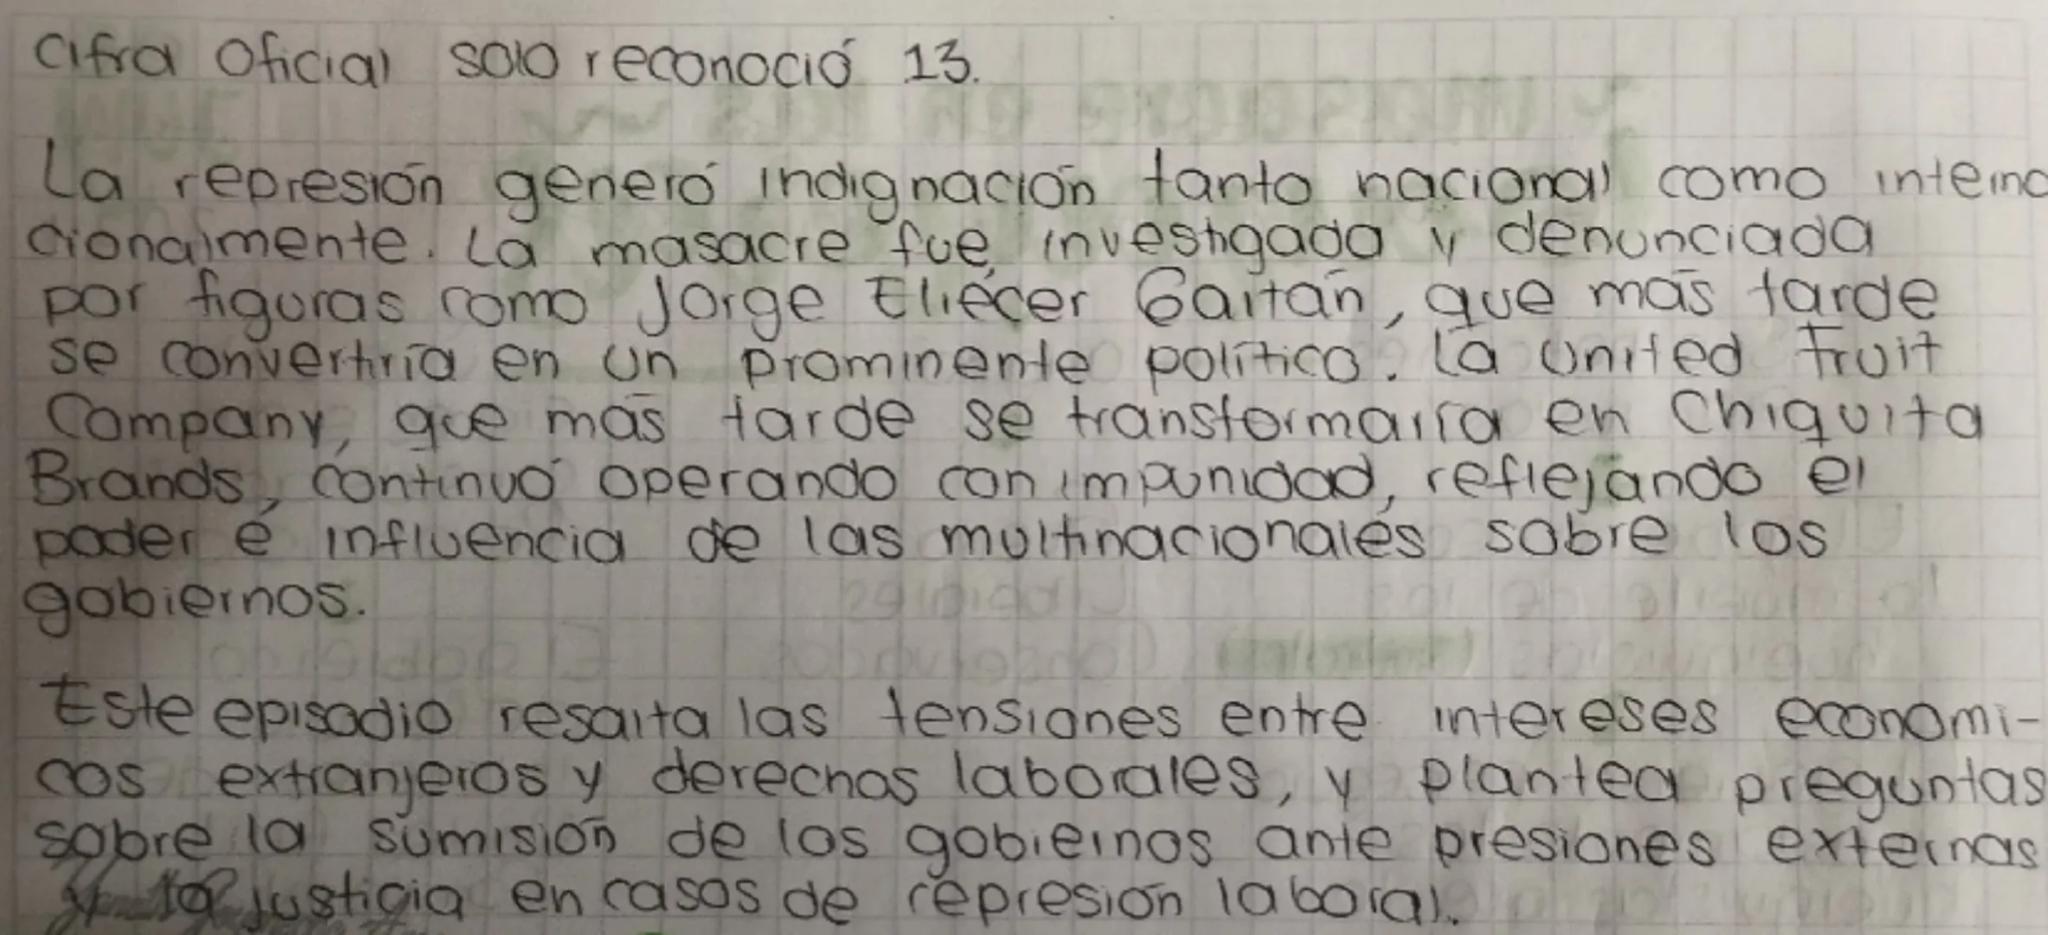 cifra Oficial solo reconoció 13.
La represión generó indignación tanto nacional como interna
cionalmente. La masacre fue investigada y denunciada
por figuras como Jorge Eliécer Gaitán, que más tarde
se convertiría en un prominente político. La United Fruit
Company, que más tarde se transformaría en Chiquita
Brands, continuó operando con impunidad, reflejando el
poder é influencia de las multinacionales sobre los
gobiernos.
Este episodio resalta las tensiones entre intereses economi-
cos extranjeros y derechos laborales, y plantea preguntas
sobre la sumisión de los gobiernos ante presiones externas
y la justicia en casos de represión laboral.